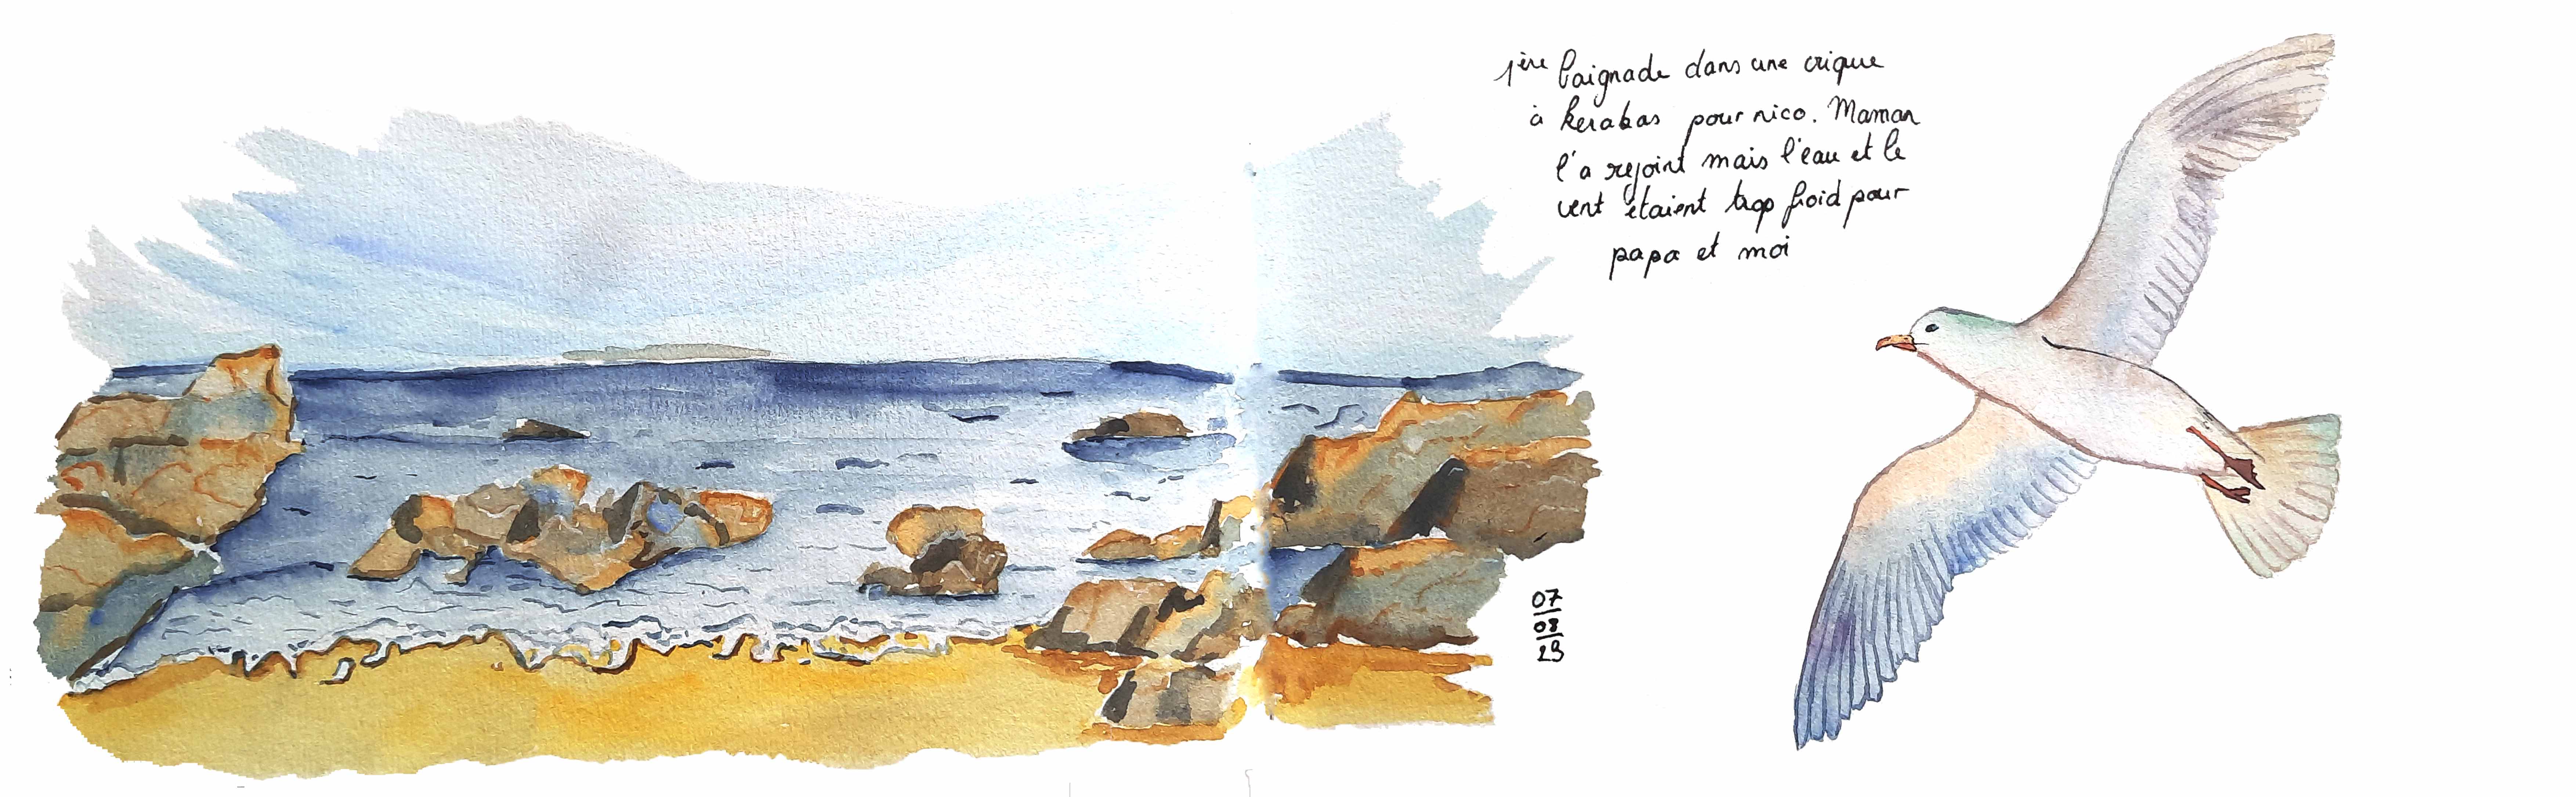 1ère baignade dans une crique
à kerabas pour nico. Maman
l'a rejoint mais l'eau et le
vent étaient trop froid pour
papa et moi
07
08
23